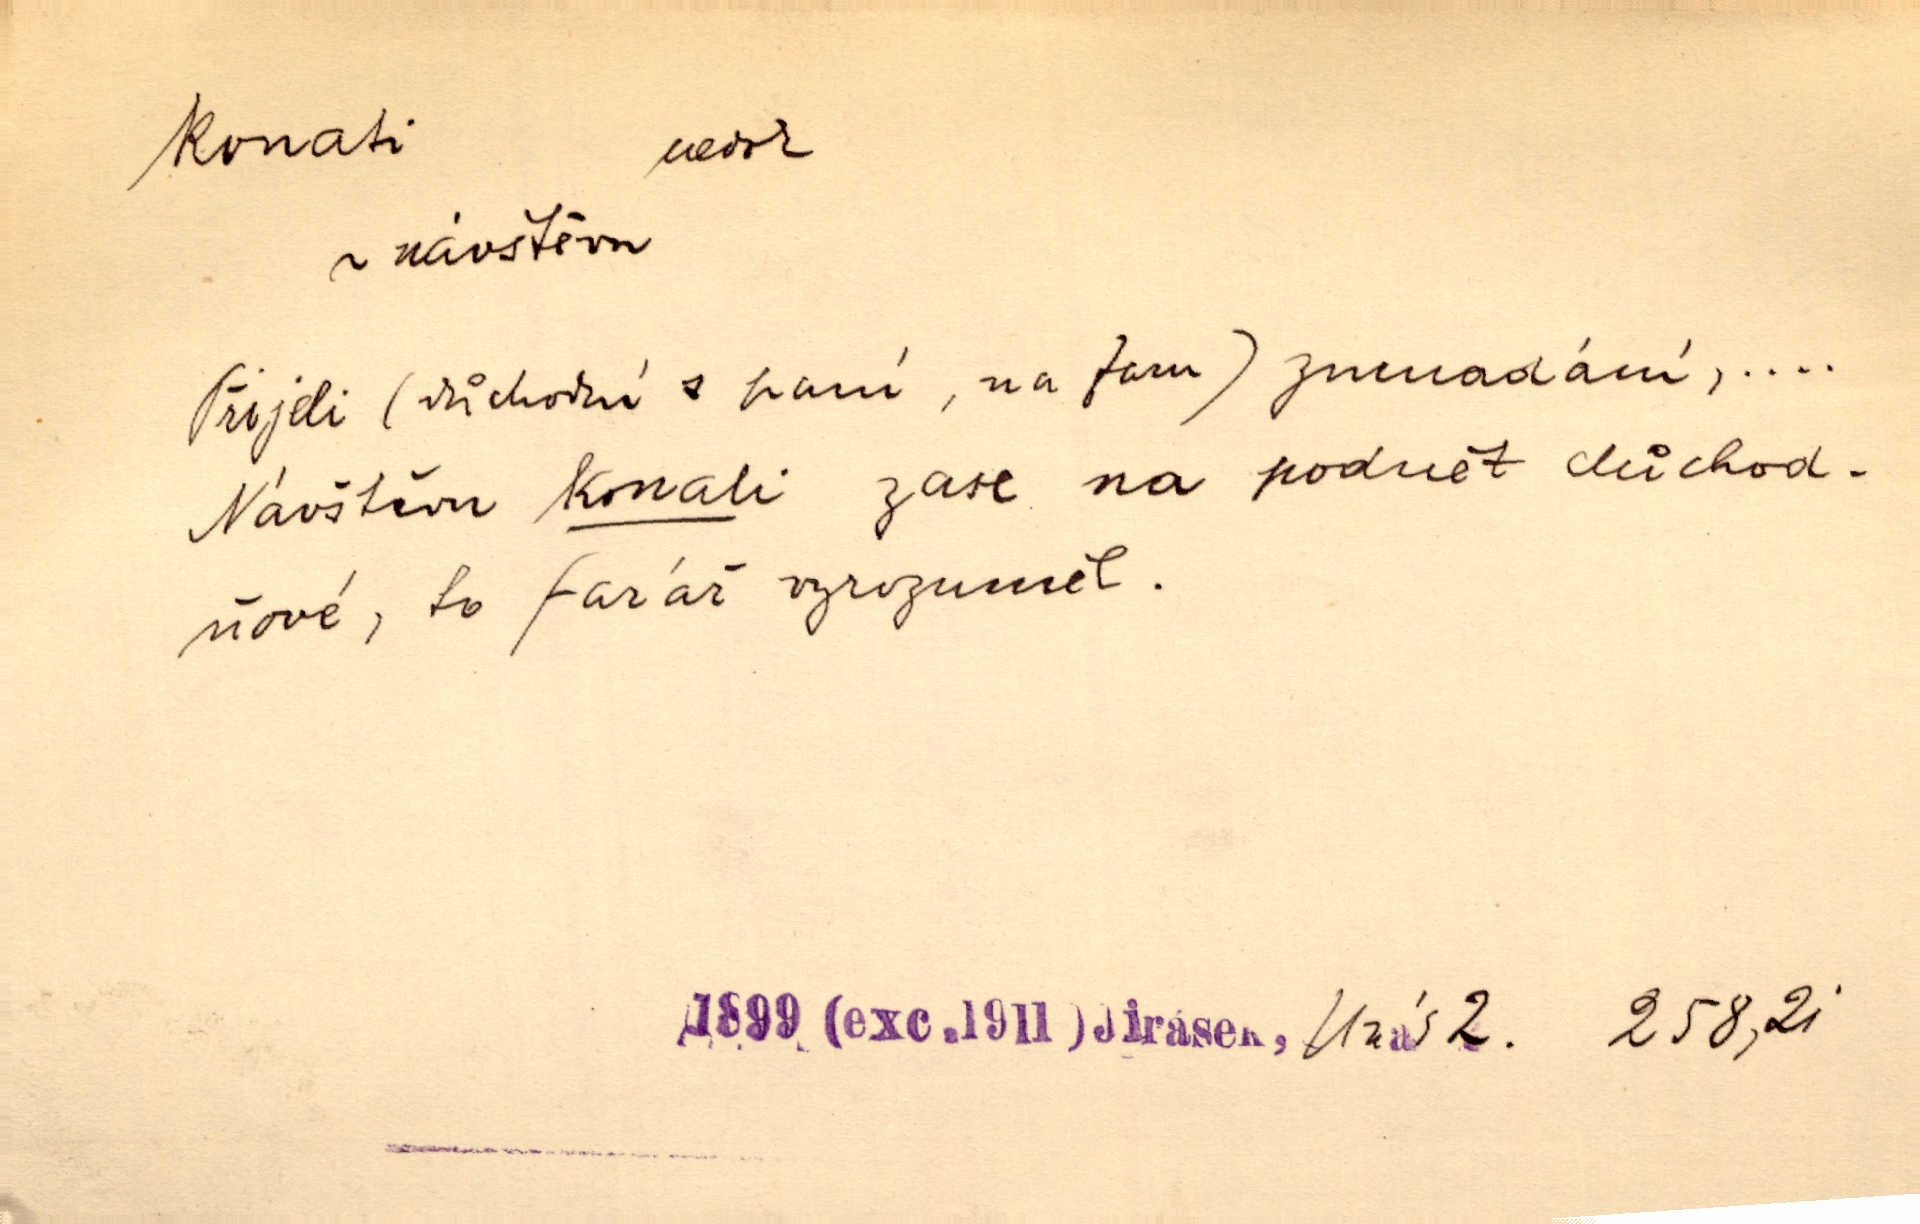 Konati nedok
~ návštěvu
Přijeli (důchodní s paní, na faru) znenadání, ....
Návštěvu konali zase na podnět důchod-
ňové, to farář vyrozuměl.
1899 (exc.1911) Jirásek, U nás 2. 258, 2i